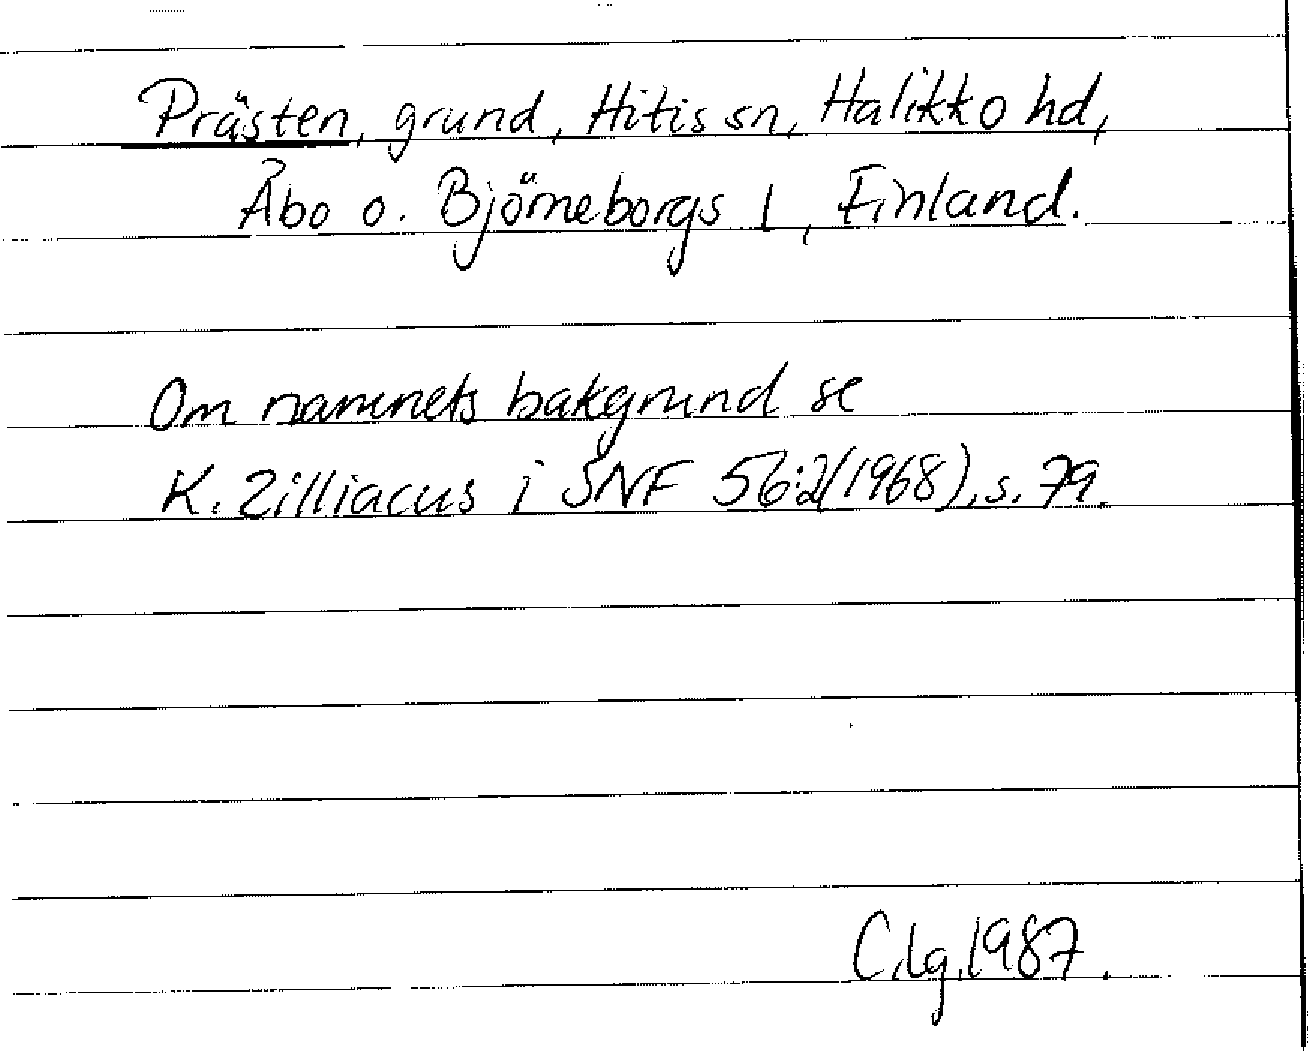 Prästen, grund, Hitis sn, Halikko hd,
Åbo o. Björneborgs l, Finland.
Om namnets bakgrund se
K. Zilliacus i SNF 56:2(1968), s. 79.
C.lg.1987.